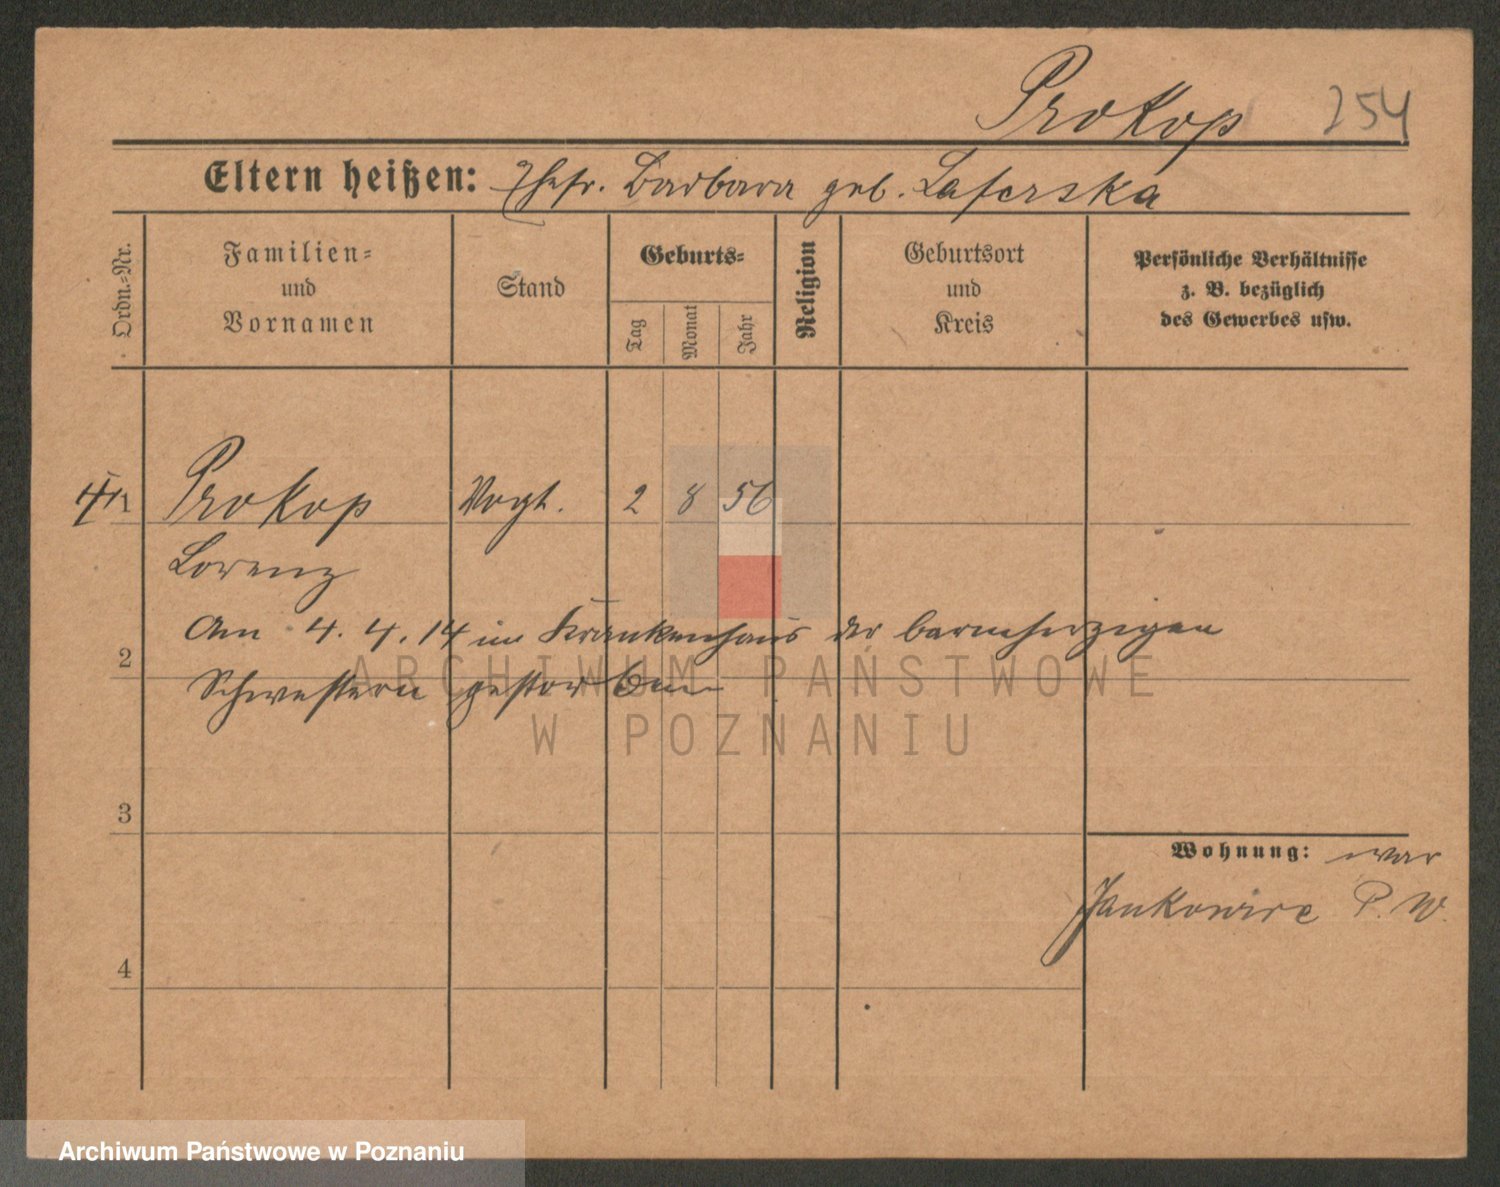 Prokop 254
Eltern heißen: Ehefr. Barbara geb. Laferska
Ordn.-Nr.
Familien-
und
Vornamen
Stand
Geburts-
Tag
Monat
Jahr
Religion
Geburtsort
und
Kreis
Persönliche Verhältnisse
z. B. bezüglich
des Gewerbes usw.
1 Prokop Vogt. 2 8 56
Lorenz
Am 4.4.14 im Krankenhaus der barmherzigen
2
Schwestern gestorben
ARCHIWUM PAŃSTWOWE
W POZNANIU
3
Wohnung: war
Jankowice P. W.
4
Archiwum Państwowe w Poznaniu